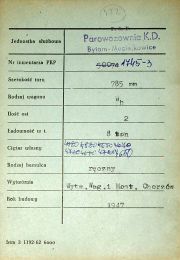 P.K.P.
Jednostka służbowa Parowozownia K.D.
Bytom-Maciejkowice
Nr inwentarza PKP 1745-3
Szerokość toru 785 mm
Rodzaj wagonu Wh
Ilość osi 2
Ładowność w t. 8 ton
Ciężar własny
Rodzaj hamulca ręczny
Wytwórnia Wytw. Wag. i Most. Chorzów
Rok budowy 1947